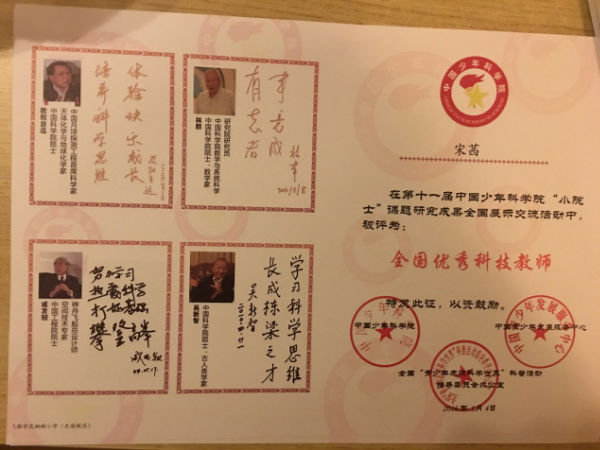 中国少年科学院
宋茜
在第十一届中国少年科学院“小院
士”课题研究成果全国展示交流活动中，
被评为：
全国优秀科技教师
特发此证，以资鼓励。
中国少年科学院
中国青少年发展服务中心
全国“青少年走进科学世界”科普活动
指导委员会办公室
2016年1月4日
体验快乐成长
培养科学思维
中国月球探测工程首席科学家
天体化学与地球化学家
中国科学院院士
欧阳自远
事竟成
有志者
林群
研究院研究员
中国科学院数学与系统科学
中国科学院院士、数学家
林群
神舟飞船总设计师
空间技术专家
中国工程院院士
戚发轫
学习科学思维
长成栋梁之才
吴新智
中国科学院院士、古人类学家
吴新智